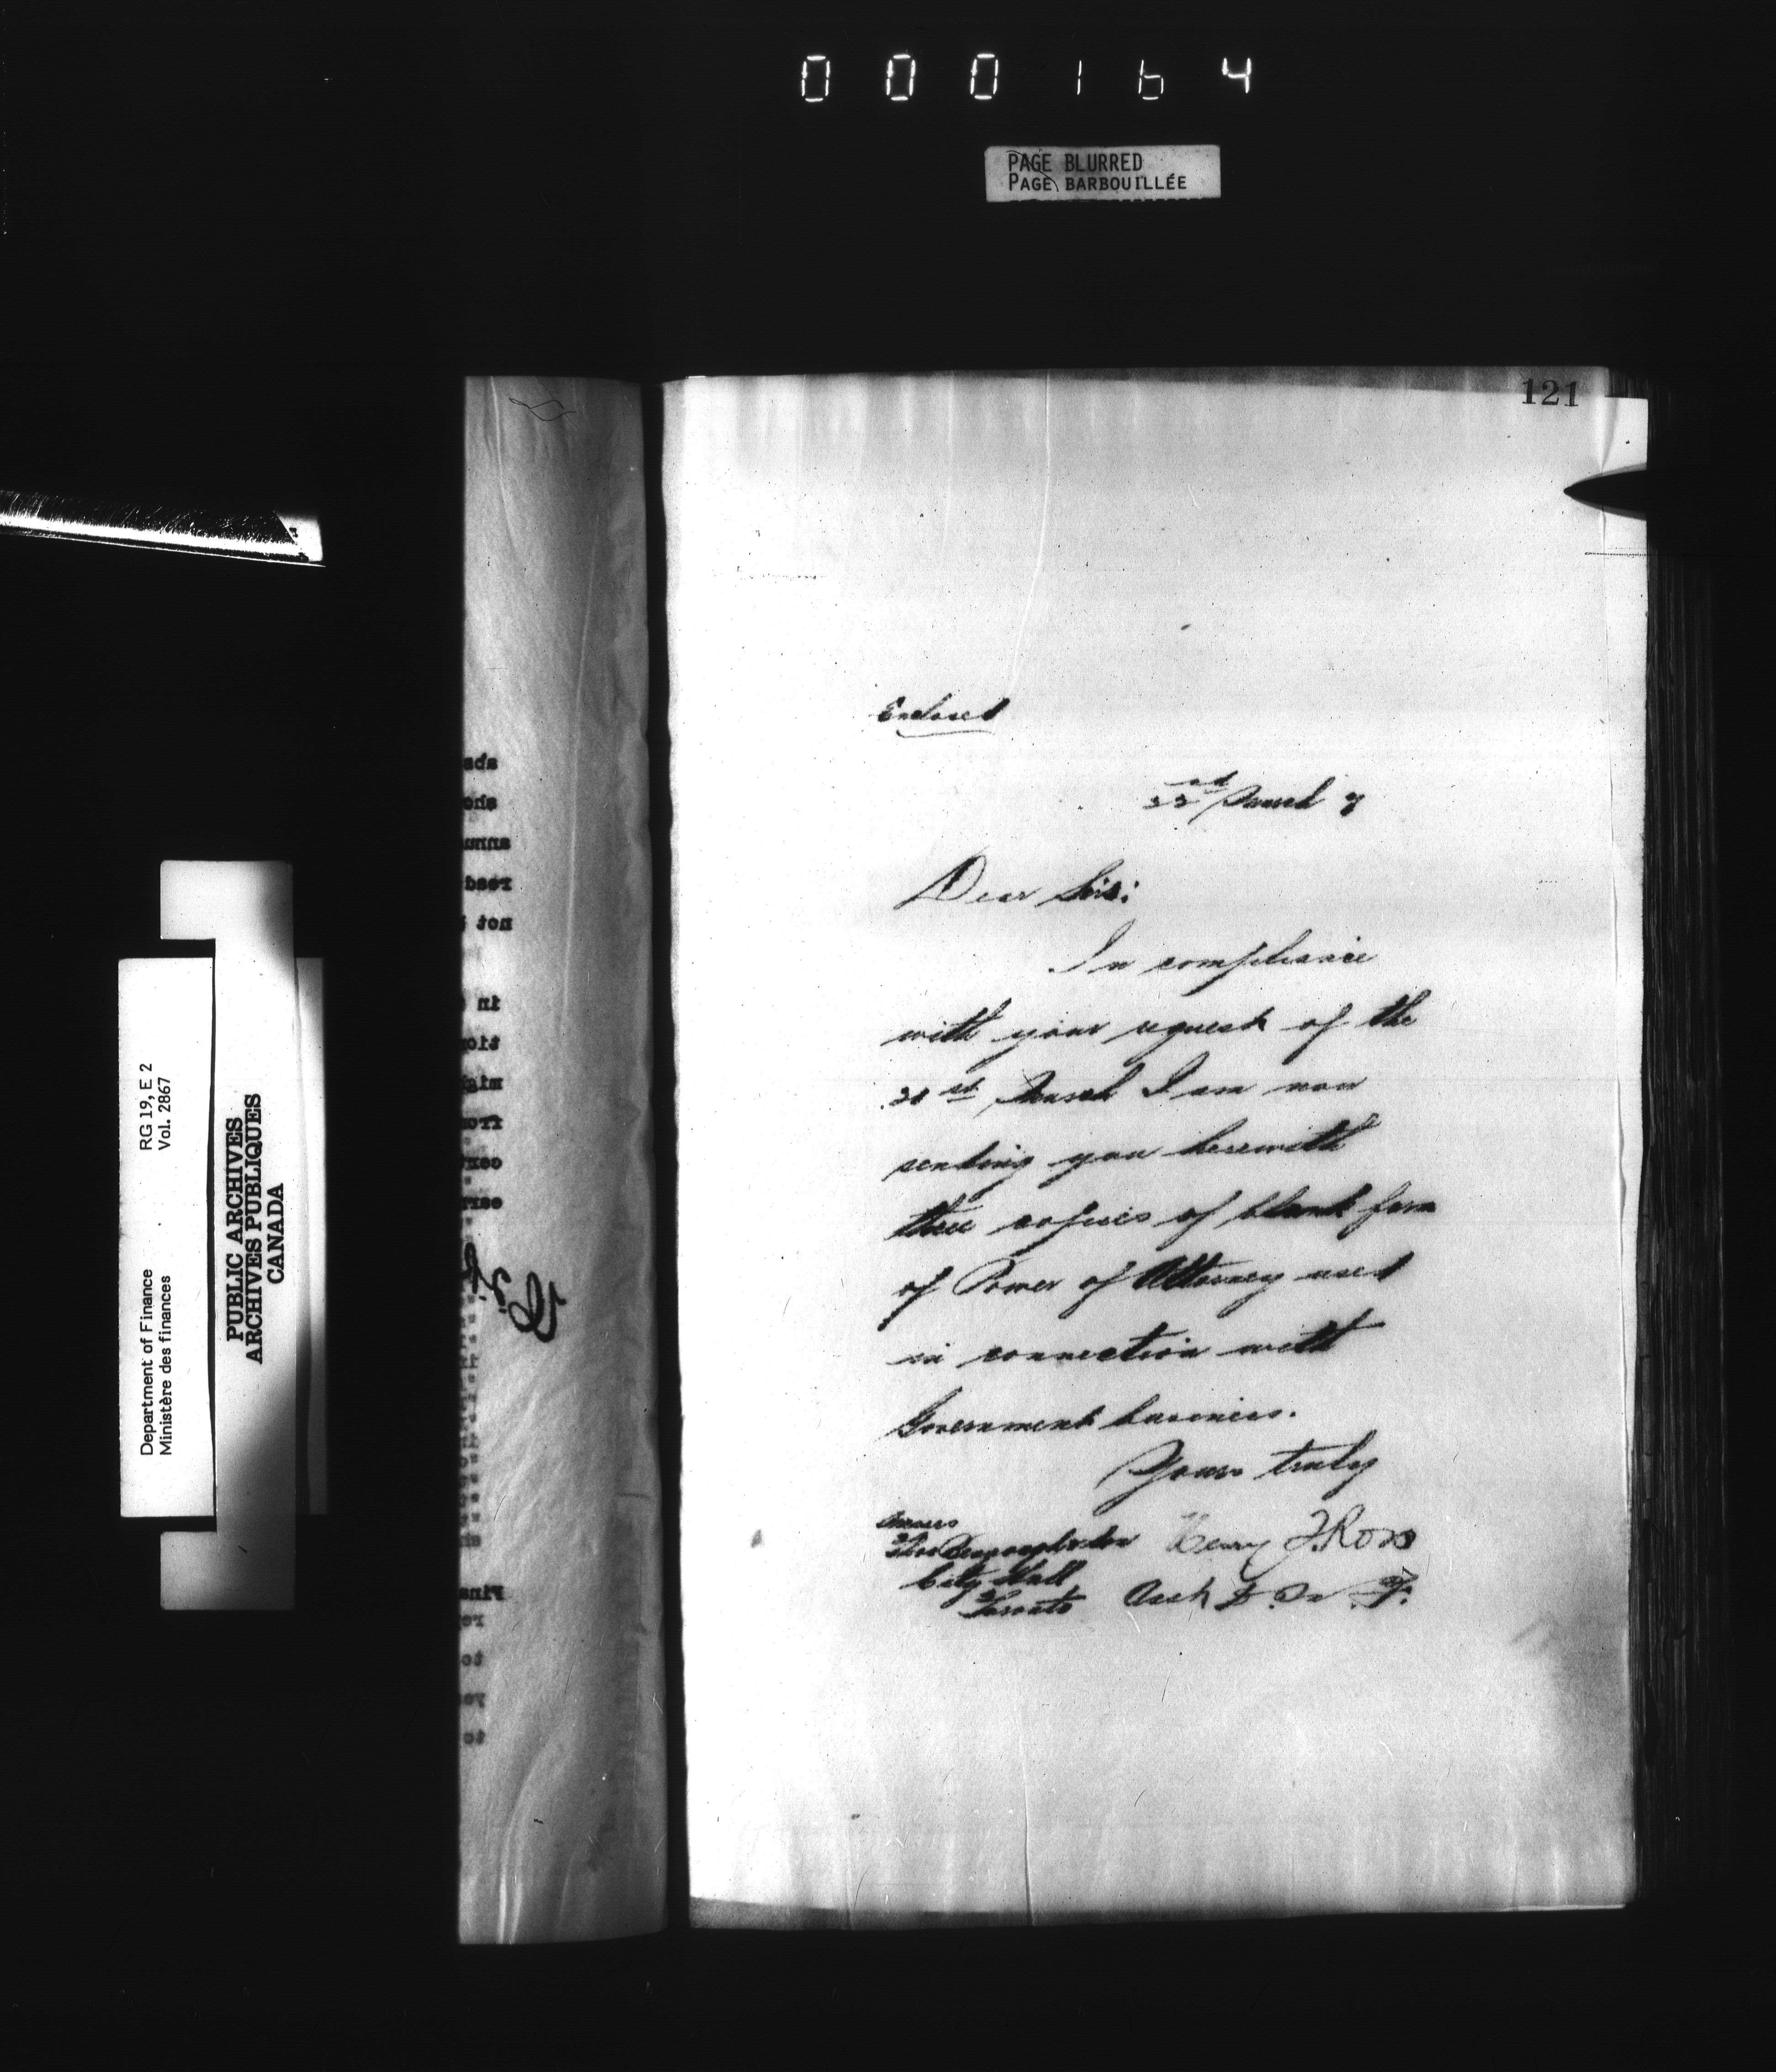 000164
PAGE BLURRED
PAGE BARBOUILLÉE
Department of Finance RG 19, E 2
Ministère des finances Vol. 2867
PUBLIC ARCHIVES
ARCHIVES PUBLIQUES
CANADA
121
Enclosed
22nd March 7
Dear Sirs:
In compliance
with your request of the
21st March I am now
sending you herewith
three copies of blank form
of Power of Attorney used
in connection with
Government business.
Yours truly
Henry T. Ross
City Hall
Toronto Asst D. M. F.